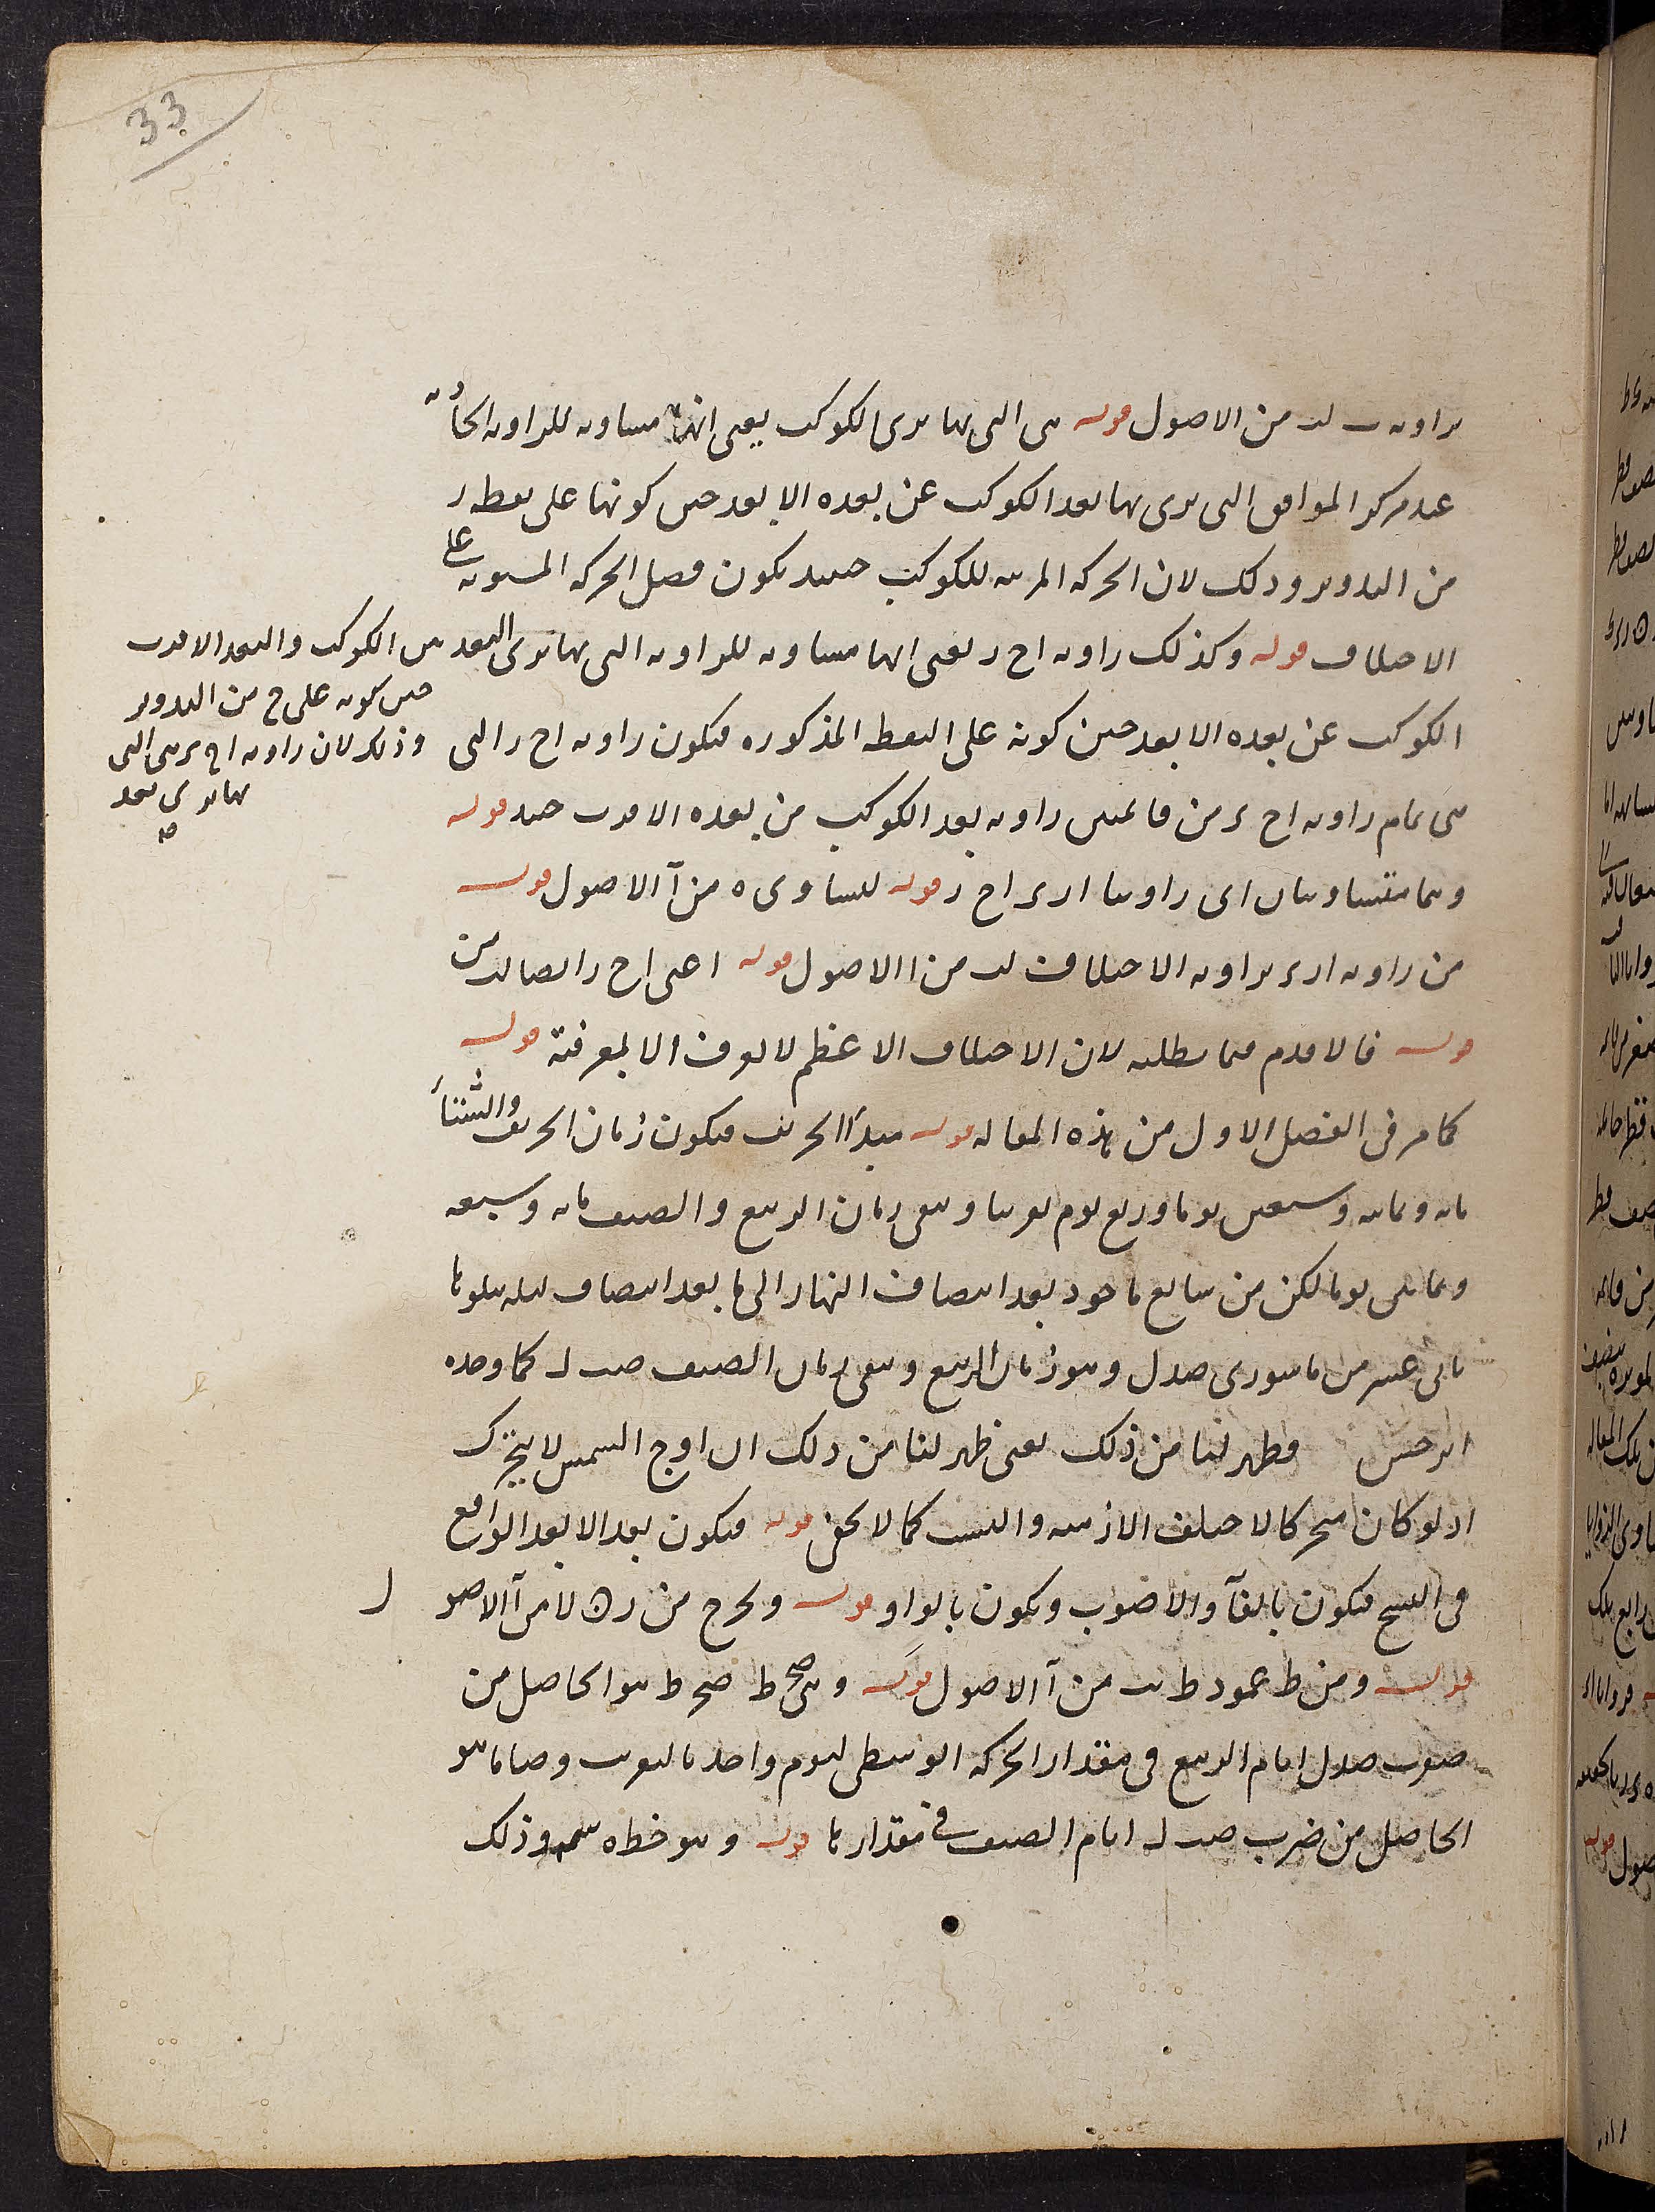 33
بزاويه ب لد من الاصول قوله هى التى بها يرى الكوكب يعنى انها مساويه للزاويه الحادثه
عند مركز الموافق التى يرى بها بعد الكوكب عن بعده الابعد حين كونها على نقطه ر
من التدوير وذلك لان الحركه المرئيه للكوكب حينئذ يكون فضل الحركه المستويه على
الاختلاف قوله وكذلك زاويه ا ح ر يعنى انها مساويه للزاويه التى بها يرى البعد
الكوكب عن بعده الابعد حين كونه على النقطه المذكوره فيكون زاويه ا ح ر التى
هى تمام زاويه ا ح ى من قائمتين زاويه بعد الكوكب من بعده الاقرب حينئذ قوله
وهما متساويتان اى زاويتا ا ر ى ا ح ر قوله لتساوى ه من آ الاصول قوله
من زاويه ا ر ى بزاويه الاختلاف لد من ا الاصول قوله اعنى ا ح ر ايضا لد من
قوله فالاقدم فيما يطلبه لان الاختلاف الاعظم لا يعرف الا بمعرفته قوله
كما مر فى الفصل الاول من هذه المقاله قوله مبدأ الخريف فيكون زمان الخريف والشتاء
مائه وثمانيه وسبعين يوما وربع يوم تقريبا وبقى زمان الربيع والصيف مائه وسبعه
وثمانين يوما لكن من سابع ماخود بعد انتصاف النهار الى ما بعد انتصاف ليله يتلوها
ثانى عشر من ماسورى صد ل وهو زمان الربيع وبقى زمان الصيف صب ل كما وجده
ابرخس وظهر لنا من ذلك يعنى ظهر لنا من ذلك ان اوج الشمس لا يتحرك
اذ لو كان متحركا لاختلف الازمنه والنسب كما لا يخفى قوله فيكون بعد الابعد الواقع
فى النسخ فيكون بالفآ والاصوب ويكون بالواو قوله ويخرج من ر ں لا من آ الاصول
قوله ومن ط عمود ط ب من آ الاصول قوله وهى صح ط صح ط هو الحاصل من
ضرب صد ل ايام الربيع فى مقدار الحركه الوسطى ليوم واحد بالتقريب وصانا هو
الحاصل من ضرب صب ل ايام الصيف فى مقدارها قوله وهو خطه وذلك
بين الكوكب والبعد الاقرب
حين كونه على ح من التدوير
وذلك لان زاويه ا ح ى هى التى
بها يرى بعد
صه